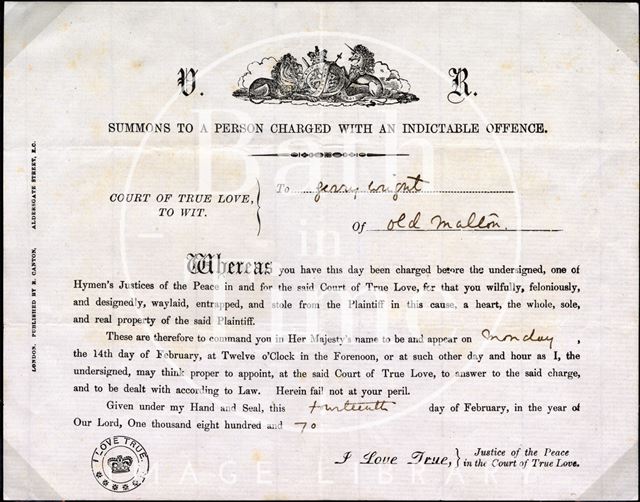 V. R.
SUMMONS TO A PERSON CHARGED WITH AN INDICTABLE OFFENCE.
COURT OF TRUE LOVE,
TO WIT.
To Gerry Wright
Of Old Malton.
Whereas you have this day been charged before the undersigned, one of
Hymen's Justices of the Peace in and for the said Court of True Love, for that you wilfully, feloniously,
and designedly, waylaid, entrapped, and stole from the Plaintiff in this cause, a heart, the whole, sole,
and real property of the said Plaintiff.
These are therefore to command you in Her Majesty's name to be and appear on Monday,
the 14th day of February, at Twelve o'Clock in the Forenoon, or at such other day and hour as I, the
undersigned, may think proper to appoint, at the said Court of True Love, to answer to the said charge,
and to be dealt with according to Law. Herein fail not at your peril.
Given under my Hand and Seal, this day of February, in the year of
Our Lord, One thousand eight hundred and 70
I Love True, Justice of the Peace
in the Court of True Love.
I LOVE TRUE.
LONDON. PUBLISHED BY R. CANTON, ALDERSGATE STREET, E.C.
Bath
in
Time
IMAGE LIBRARY